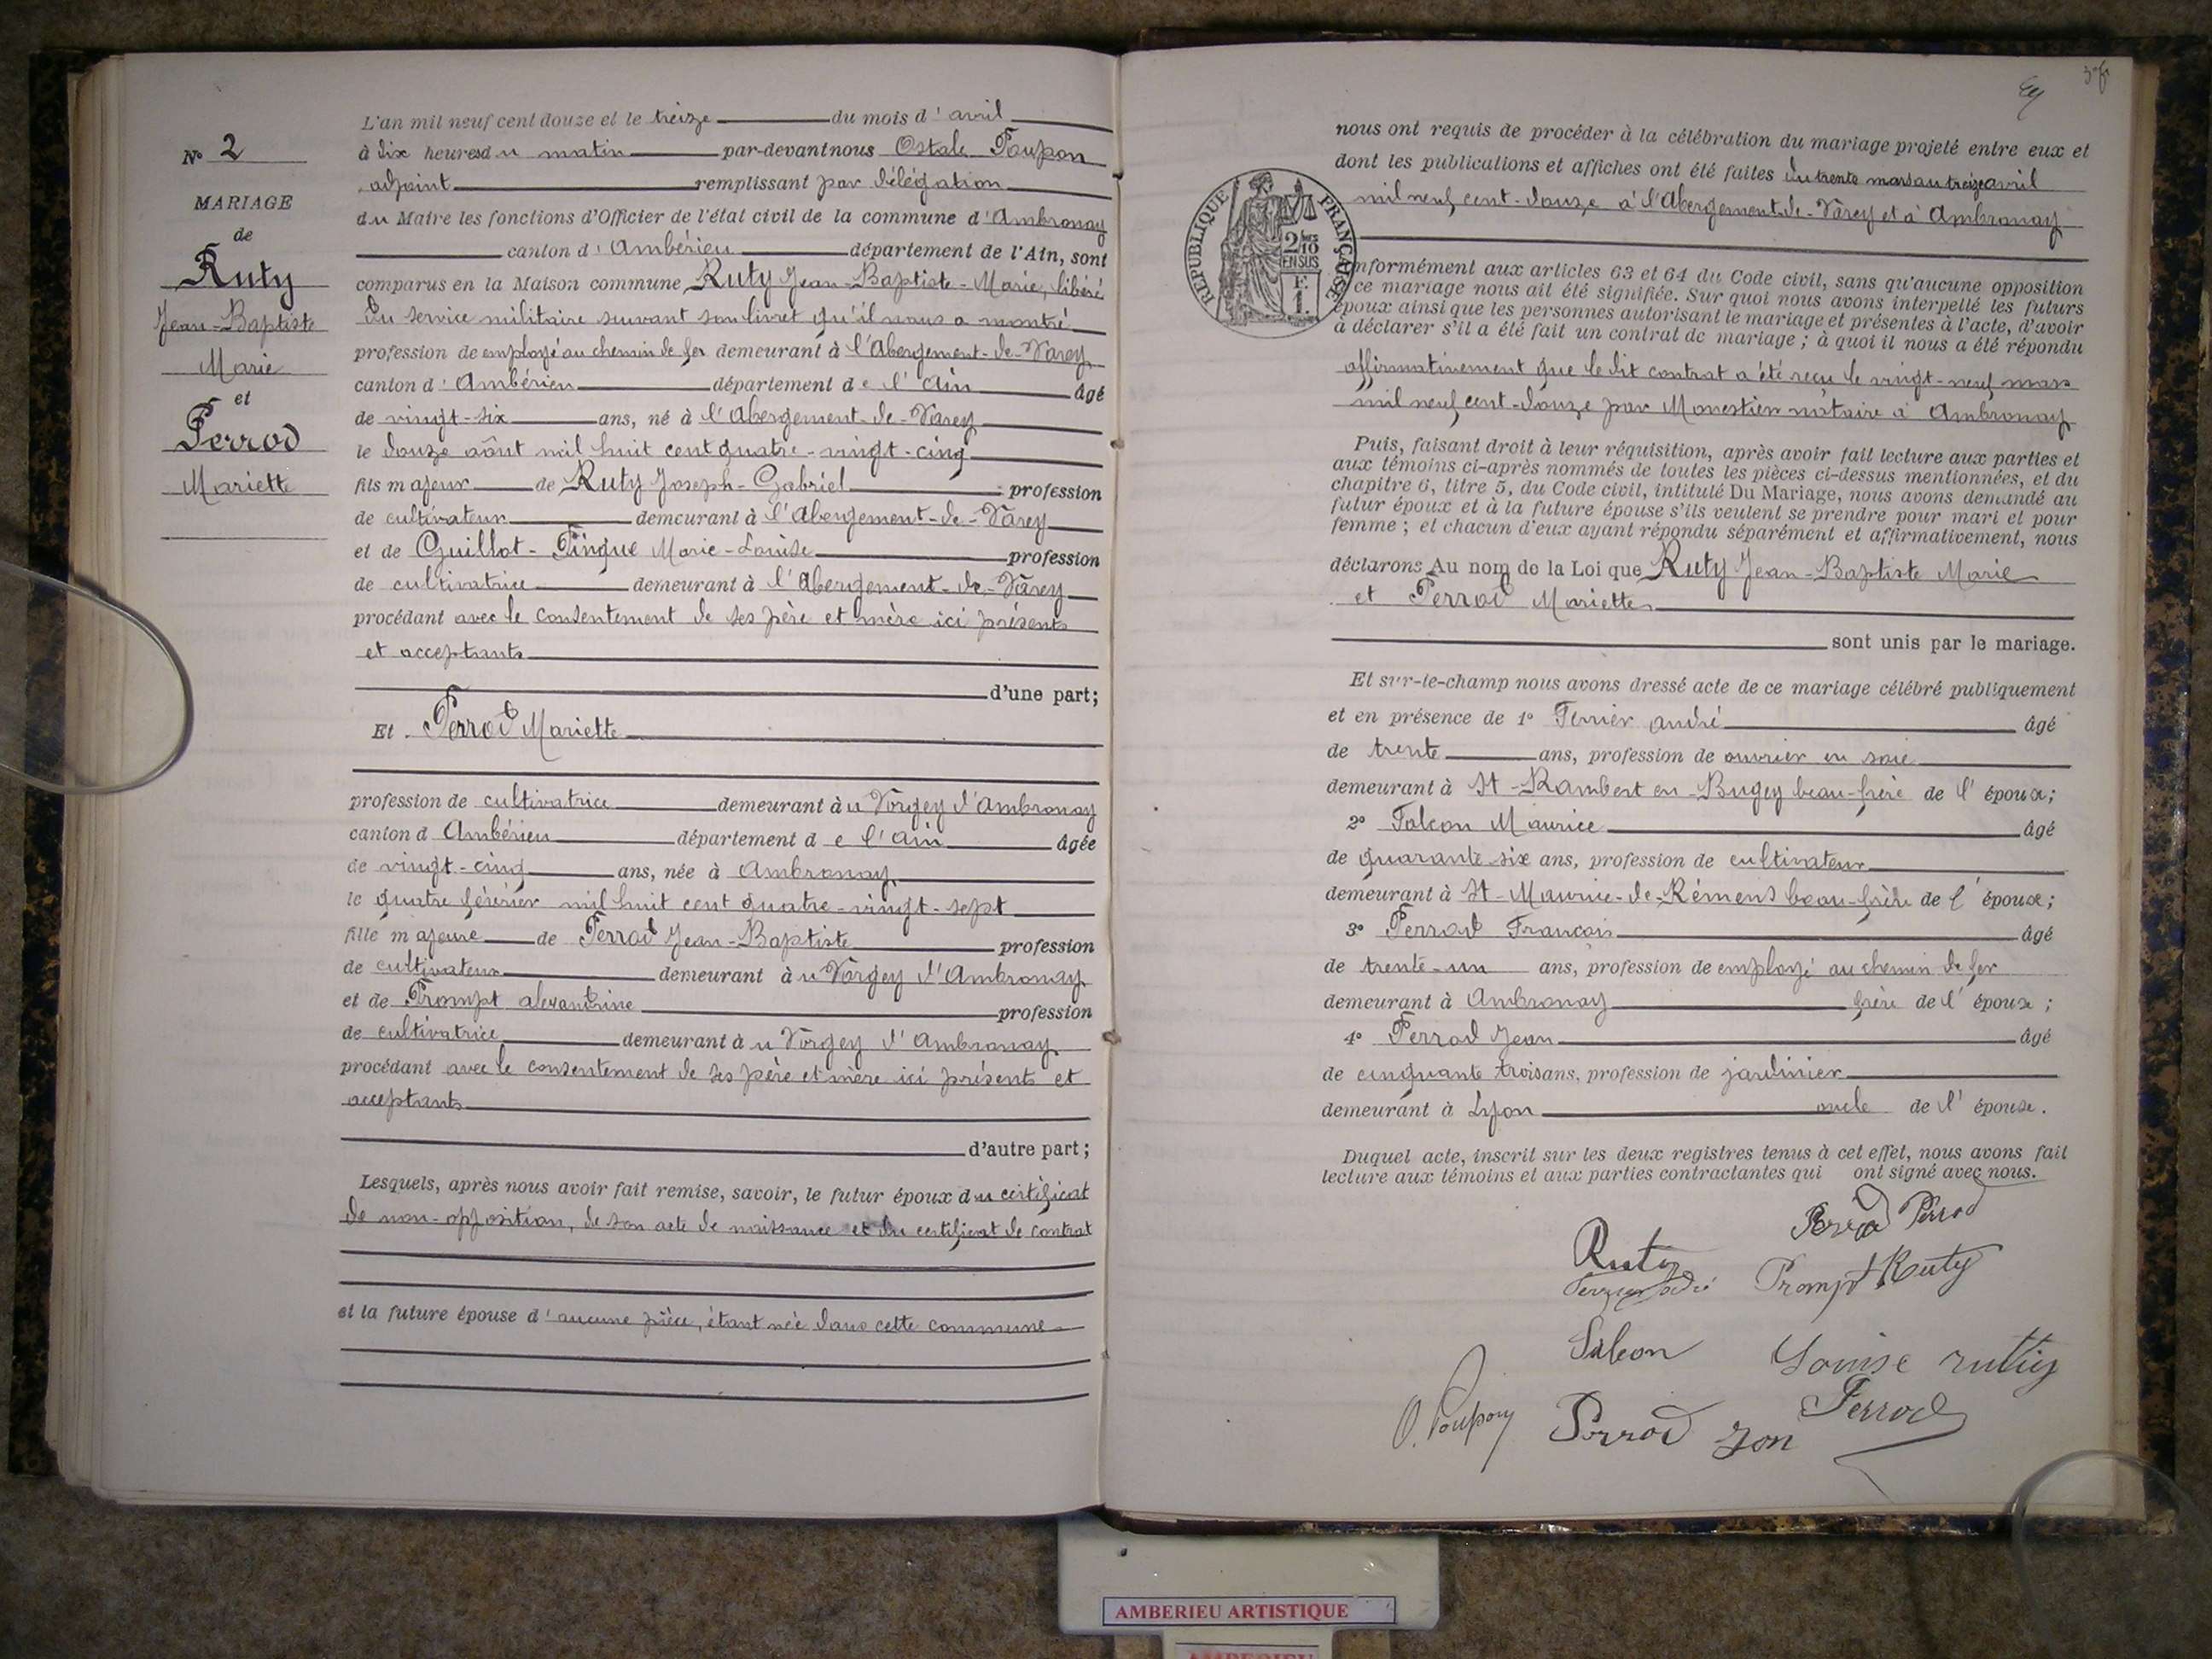 N° 2
MARIAGE
de
Ruty
Jean-Baptiste
Marie
et
Perrod
Mariette
L'an mil neuf cent douze et le treize du mois d'avril
à dix heures du matin par-devant nous Ostale Poupon
adjoint remplissant par délégation
du Maire les fonctions d'Officier de l'état civil de la commune d'Ambronay
canton d'Ambérieu département de l'Ain, sont
comparus en la Maison commune Ruty Jean-Baptiste-Marie, libéré
du service militaire suivant son livret qu'il nous a montré
profession de employé au chemin de fer demeurant à l'Abergement-de-Varey
canton d'Ambérieu département de l'Ain âgé
de vingt-six ans, né à l'Abergement-de-Varey
le douze août mil huit cent quatre-vingt-cinq
fils majeur de Ruty Joseph-Gabriel profession
de cultivateur demeurant à l'Abergement-de-Varey
et de Guillot-Pingue Marie-Louise profession
de cultivatrice demeurant à l'Abergement-de-Varey
procédant avec le consentement de ses père et mère ici présents
et acceptants
d'une part;
Et Perrod Mariette
profession de cultivatrice demeurant à u Vorgey d'Ambronay
canton d Ambérieu département de l'Ain âgée
de vingt-cinq ans, née à Ambronay
le quatre février mil huit cent quatre-vingt-sept
fille majeure de Perrod Jean-Baptiste profession
de cultivateur demeurant à u Vorgey d'Ambronay
et de Prompt alexandrine profession
de cultivatrice demeurant à u Vorgey d'Ambronay
procédant avec le consentement de ses père et mère ici présents et
acceptants
d'autre part;
Lesquels, après nous avoir fait remise, savoir, le futur époux du certificat
de non-opposition, de son acte de naissance et du certificat de contrat
et la future épouse d'aucune pièce, étant née dans cette commune
nous ont requis de procéder à la célébration du mariage projeté entre eux et
dont les publications et affiches ont été faites du trente mars au treize avril
mil neuf cent-douze à l'Abergement-de-Varey et à Ambronay
RÉPUBLIQUE FRANÇAISE
2/10 EN SUS
1 F.
conformément aux articles 63 et 64 du Code civil, sans qu'aucune opposition
ce mariage nous ait été signifiée. Sur quoi nous avons interpellé les futurs
époux ainsi que les personnes autorisant le mariage et présentes à l'acte, d'avoir
à déclarer s'il a été fait un contrat de mariage ; à quoi il nous a été répondu
affirmativement que le dit contrat a été reçu le vingt-neuf mars
mil neuf cent-douze par Monestier notaire à Ambronay
Puis, faisant droit à leur réquisition, après avoir fait lecture aux parties et
aux témoins ci-après nommés de toutes les pièces ci-dessus mentionnées, et du
chapitre 6, titre 5, du Code civil, intitulé Du Mariage, nous avons demandé au
futur époux et à la future épouse s'ils veulent se prendre pour mari et pour
femme ; et chacun d'eux ayant répondu séparément et affirmativement, nous
déclarons Au nom de la Loi que Ruty Jean-Baptiste Marie
et Perrod Mariette
sont unis par le mariage.
Et sur-le-champ nous avons dressé acte de ce mariage célébré publiquement
et en présence de 1° Ferrier andré âgé
de trente ans, profession de ouvrier en soie
demeurant à St-Rambert en-Bugey beau-frère de l'épouse;
2° Falcon Maurice âgé
de quarante-six ans, profession de cultivateur
demeurant à St-Maurice-de-Rémens beau-frère de l'épouse;
3° Perrod Francois âgé
de trente-un ans, profession de employé au chemin de fer
demeurant à Ambronay frère de l'épouse;
4° Perrod Jean âgé
de cinquante trois ans, profession de jardinier
demeurant à Lyon oncle de l'épouse.
Duquel acte, inscrit sur les deux registres tenus à cet effet, nous avons fait
lecture aux témoins et aux parties contractantes qui ont signé avec nous.
Perrod Perrod
Ruty
Prompt Ruty
Falcon
Louise rutty
O. Poupon
Perrod
Perrod
AMBERIEU ARTISTIQUE
AMBERIEU